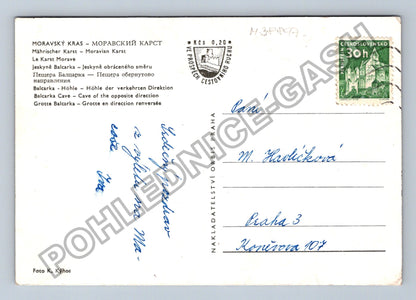 MORAVSKÝ KRAS – МОРАВСКИЙ КАРСТ
Mährischer Karst – Moravian Karst
Le Karst Morave
Jeskyně Balcarka – Jeskyně obráceného směru
Пещера Балцарка — Пещера обернутово
направления
Balcarka - Höhle – Höhle der verkehrten Direktion
Balcarka Cave – Cave of the opposite direction
Grotte Balcarka – Grotte en direction renversée
Kčs 0,20
VE PROSPĚCH CESTOVNÍHO RUCHU
ČESKOSLOVENSKO
30h
Srdečný pozdrav
z výletu na Ma-
coše
Iva
NAKLADATELSTVÍ ORBIS PRAHA
Paní
M. Havlíčková
Praha 3
Koněvova 107
Foto K.
POHLEDNICE-GASH